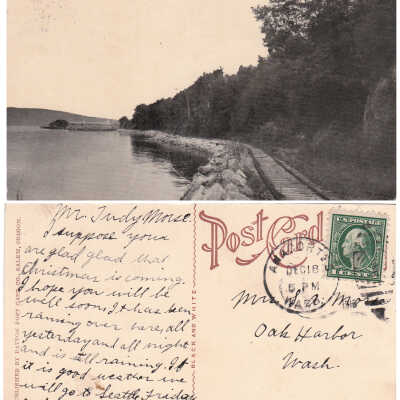 Mr. Trudy Morse.
I suppose your
are glad glad that
Christmas is coming.
I hope you will be
well soon. It has been
raining over here, all
yesterday and all night
and is still raining. If
it is good weather we
will go to Seattle, Friday
BLACK AND WHITE
Post Card
ANACORTES
DEC 18
5 PM
WASH
U.S. POSTAGE
1 CENT 1
Mrs.
Oak Harbor
Wash.